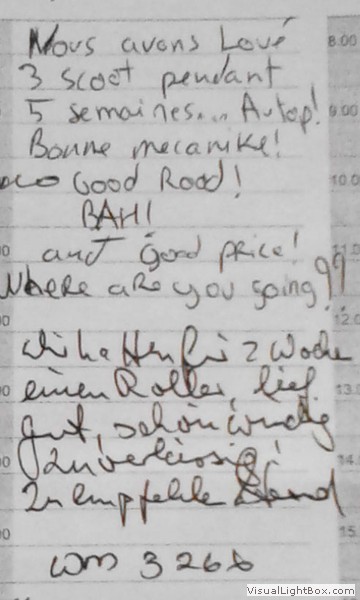 Nous avons Loué
3 scoot pendant
5 semaines... Autop!
Bonne mecanike!
Good Road!
BAH!
and good price!
Where are you going??
wir hatten für 2 Woche
einen Roller, lief
gut, schön windig
Zuverlässig!
Zu empfehle
8:00
9:00
10:0
11:0
12:0
13:0
14:
15:
VisualLightBox.com